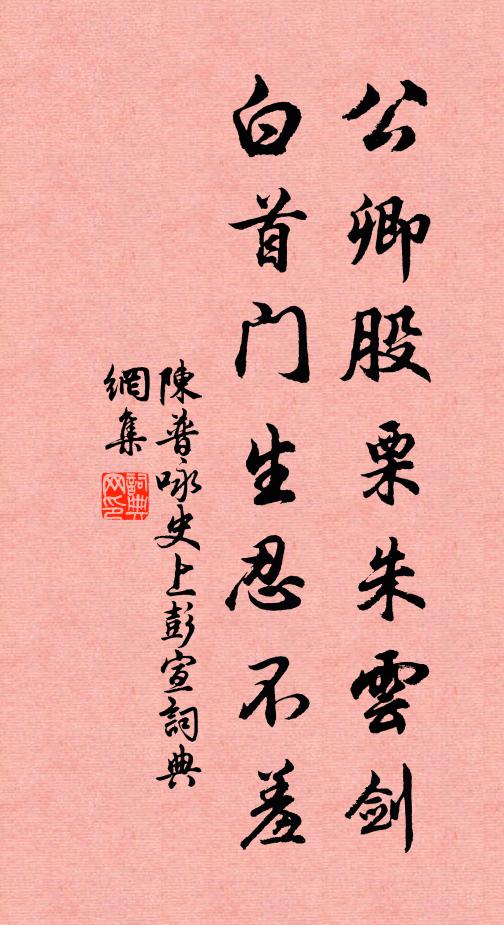 公卿股栗朱雲劍
白首門生忍不羞
陳普咏史上彭宣詞典
網集
詞典網印